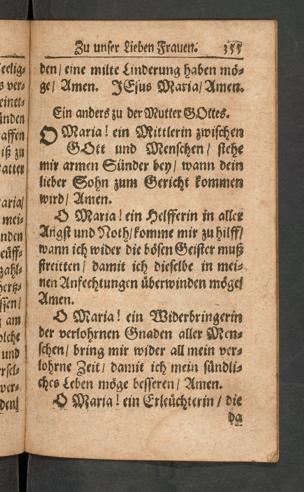 Zu unser Lieben Frauen. 355
den / eine milte Linderung haben mö-
ge / Amen. JEsus Maria / Amen.
Ein anders zu der Mutter GOttes.
O Maria! ein Mittlerin zwischen
GOtt und Menschen / stehe
mir armen Sünder bey / wann dein
lieber Sohn zum Gericht kommen
wird / Amen.
O Maria! ein Helfferin in aller
Angst und Noth / komme mir zu hilff /
wann ich wider die bösen Geister muß
streitten / damit ich dieselbe in mei-
nen Anfechtungen überwinden möge /
Amen.
O Maria! ein Widerbringerin
der verlohrnen Gnaden aller Men-
schen / bring mir wider all mein ver-
lohrne Zeit / damit ich mein sündli-
ches Leben möge besseren / Amen.
O Maria! ein Erleüchterin / die
da